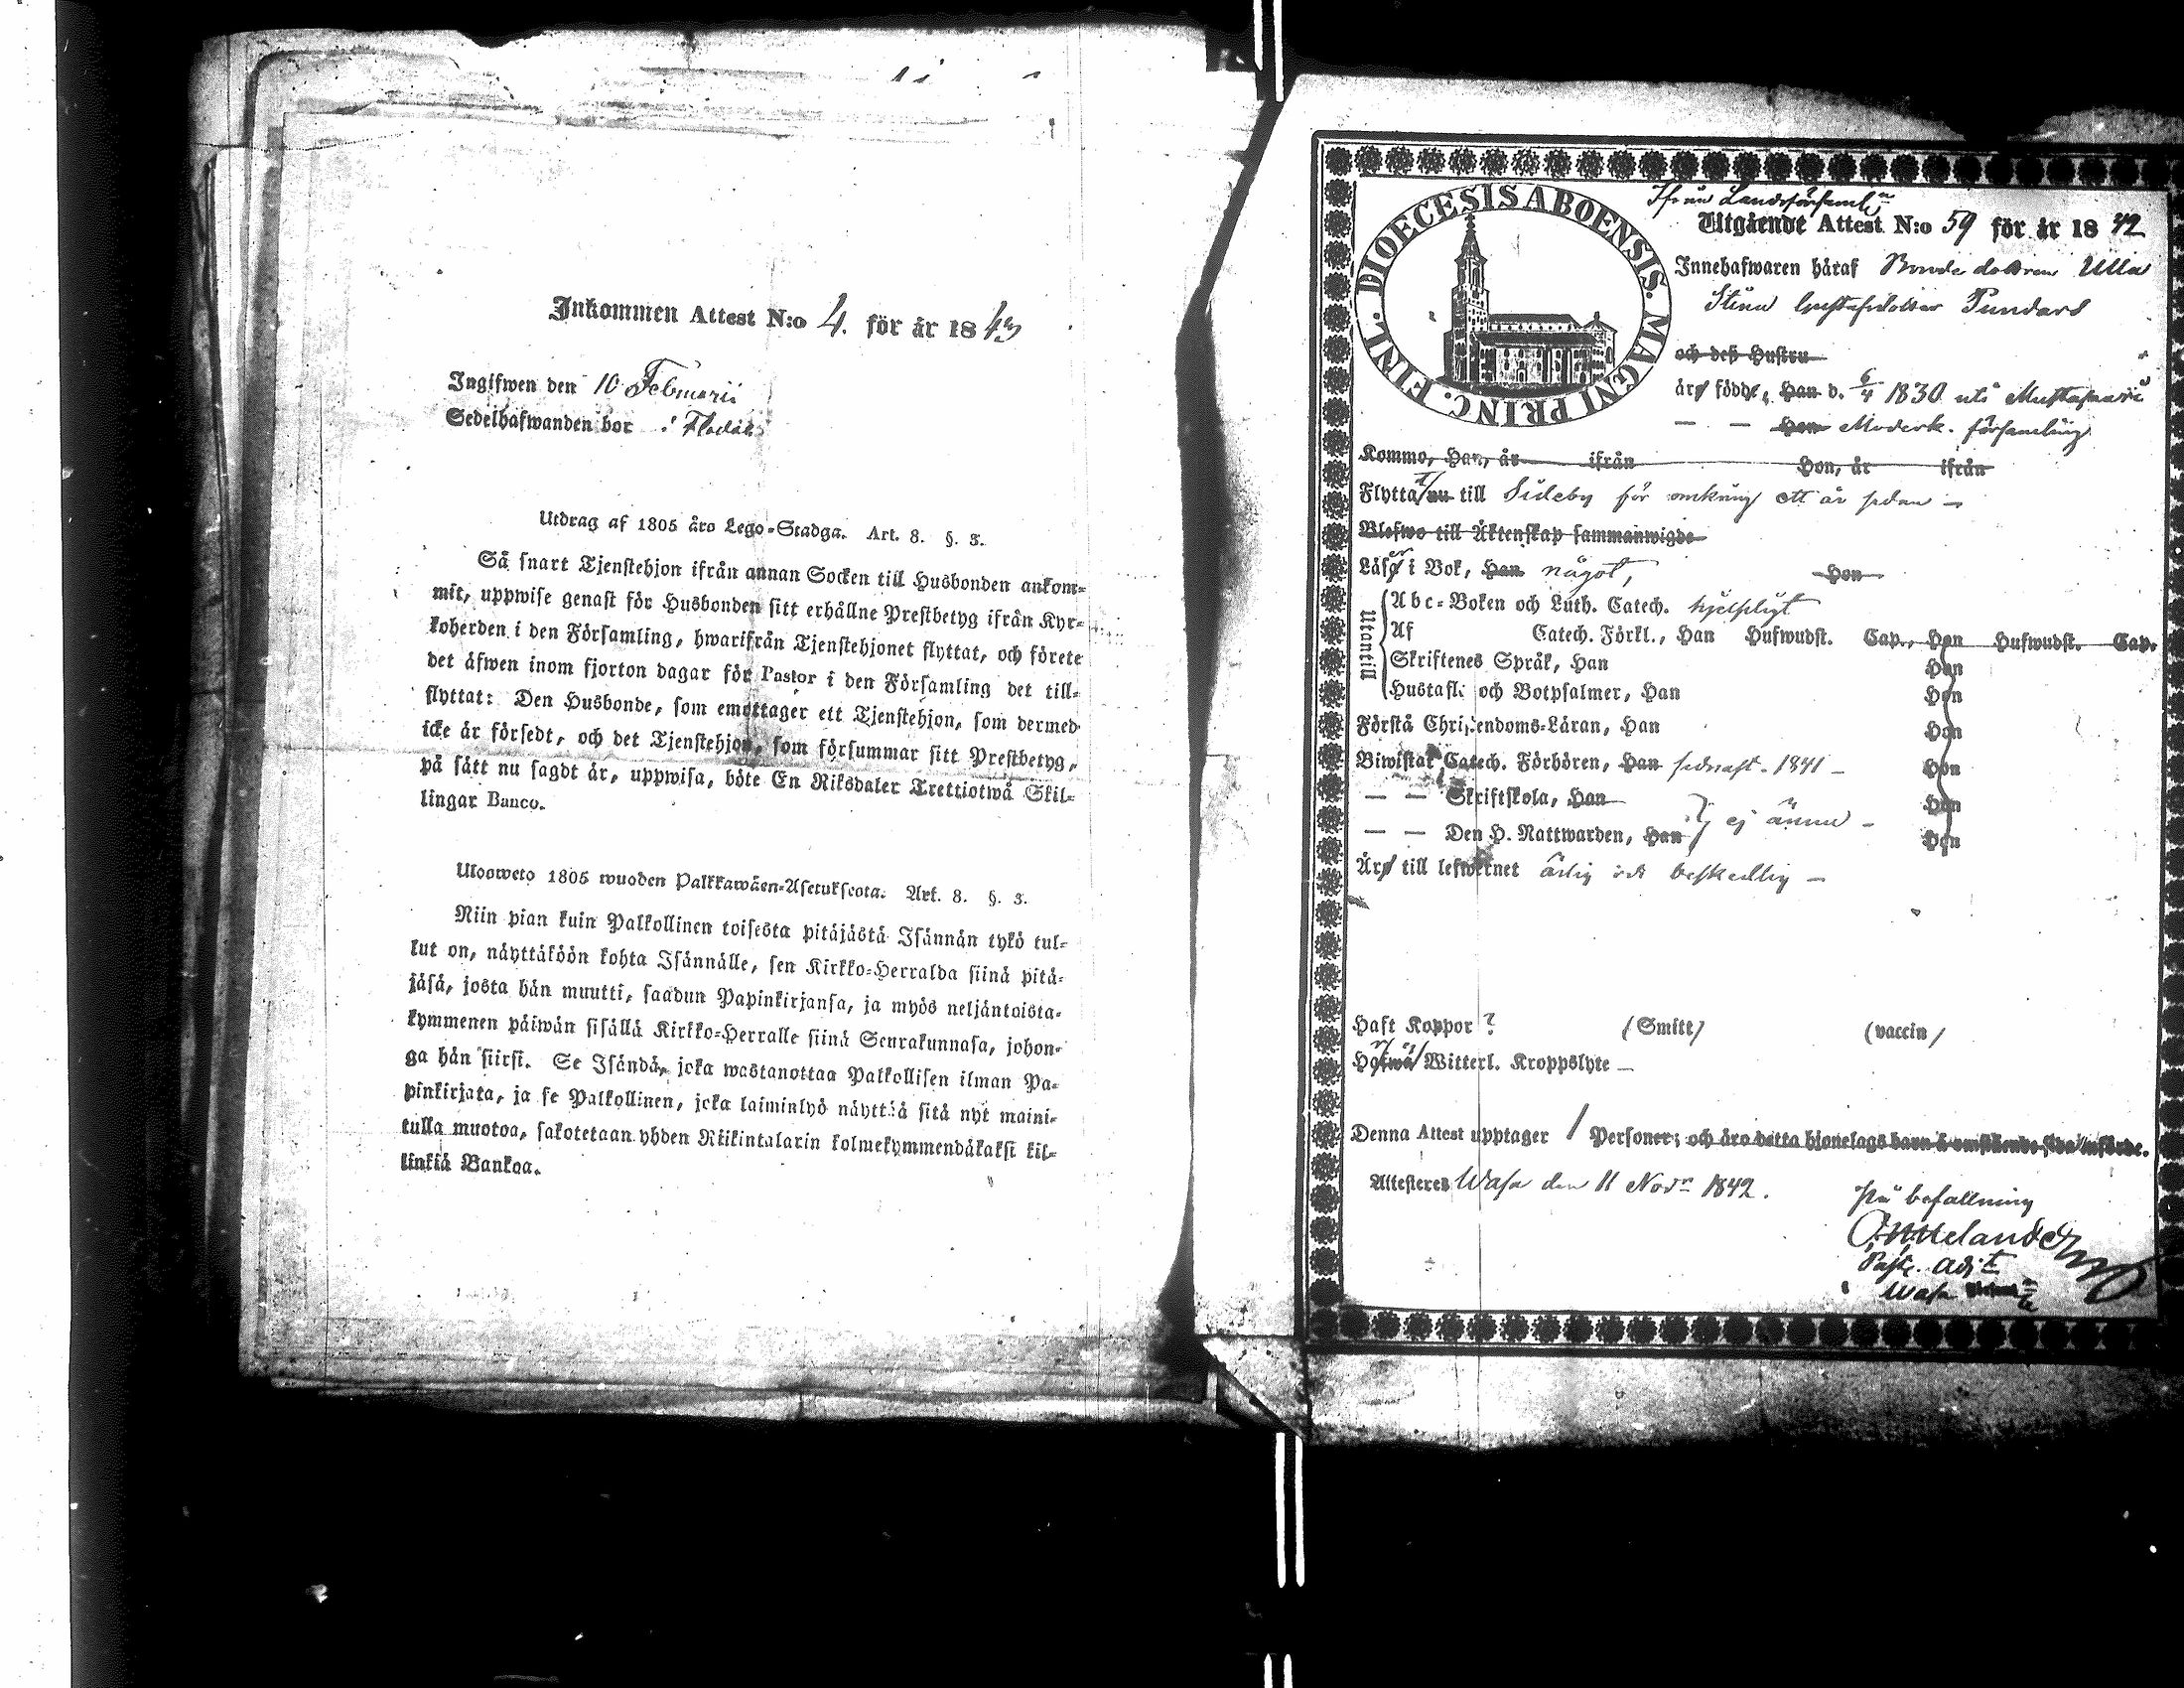 Inkommen Attest N:o 4. för år 1843
Ingifwen den 10 Februarii
Sedelhafwanden bor i Flodå
Utdrag af 1805 års Lego-Stadga. Art. 8. §. 3.
Så snart Tjenstehjon ifrån annan Socken till Husbonden ankom-
mit, uppwise genast för Husbonden sitt erhållne Prestbetyg ifrån Kyr-
koherden i den Församling, hwarifrån Tjenstehjonet flyttat, och förete
det äfwen inom fjorton dagar för Pastor i den Församling det till-
flyttat: Den Husbonde, som emottager ett Tjenstehjon, som dermed
icke är försedt, och det Tjenstehjon, som försummar sitt Prestbetyg,
på sätt nu sagdt är, uppwisa, böte En Riksdaler Trettiotwå Skil-
lingar Banco.
Uloosweto 1805 wuoden Palkkawäen-Asetuksesta. Art. 8. §. 3.
Niin pian kuin Palkollinen toisesta pitäjästä Isännän tykö tul-
lut on, näyttäköön kohta Isännälle, sen Kirkko-Herralda siinä pitä-
jäsä, josta hän muutti, saadun Papinkirjansa, ja myös neljäntoista-
kymmenen päiwän sisällä Kirkko-Herralle siinä Seurakunnasa, johon-
ga hän siirsi. Se Isändä, joka wastanottaa Palkollisen ilman Pa-
pinkirjata, ja se Palkollinen, joka laiminlyö näyttää sitä nyt maini-
tulla muotoa, sakotetaan yhden Riikintalarin kolmekymmendäkaksi kil-
linkiä Bankoa.
DIOECESIS ABOENSIS. MAGNI PRINC. FINL.
Ifrån Landsförsaml:n
Utgående Attest N:o 59 för år 1842
Innehafwaren häraf Bondedottren Ulla
Stina Gustafsdotter Pundars
och deß Hustru
äro födde, Han d. 6/4 1830 uti Mustasaari
— — Hon Moderk. församling
Kommo, Han, år ifrån Hon, år ifrån
Flyttat nu till Sideby för omkring ett år sedan —
Blefwo till Äktenskap sammanwigde
Läser i Bok, Han något, Hon
Utantill
Abc-Boken och Luth. Catech. hjelpligt
Af Catech. Förkl., Han Hufwudst. Cap., Hon Hufwudst. Cap.
Skriftenes Språk, Han Hon
Hustafla och Botpsalmer, Han Hon
Förstå Christendoms-Läran, Han Hon
Biwistat Catech. Förhören, Han sednast. 1841 — Hon
— — Skriftskola, Han Hon
ej ännu —
— — Den H. Nattwarden, Han Hon
Är till lefwernet ärlig och beskedlig —
Haft Koppor ? (Smitt) (vaccin)
Hafwa Witterl. Kroppslyte —
Denna Attest upptager 1 Personer; och äro detta hjonelags barn å omstående sida införde.
Attesteres Wasa den 11 Nov:r 1842.
På befallning
Past. Adj:t
Wasa